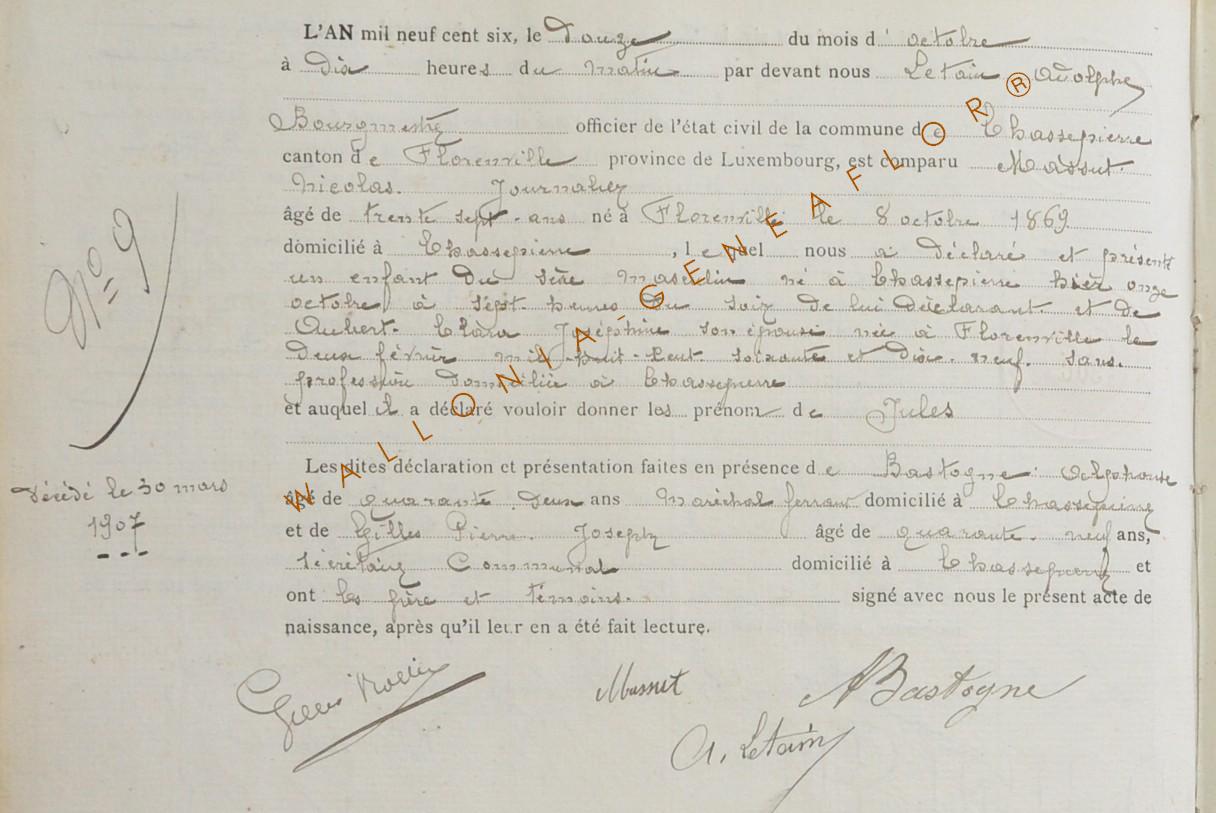 L'AN mil neuf cent six, le Douze du mois d' octobre
à Dix heures du Matin par devant nous Letain Adolphe
Bourgmestre officier de l'état civil de la commune de Chassepierre
canton de Florenville province de Luxembourg, est comparu Massut
Nicolas. Journalier
âgé de trente sept ans né à Florenville le 8 octobre 1869
domicilié à Chassepierre, lequel nous a déclaré et présenté
un enfant du sexe Masculin né à Chassepierre hier onze
octobre à sept heures du soir de lui déclarant et de
Aubert Clara Joséphine son épouse née à Florenville le
Deux février mil-huit-cent soixante et dix-neuf. sans
profession domiciliée à Chassepierre
et auquel il a déclaré vouloir donner les prénom de Jules
Les dites déclaration et présentation faites en présence de Bastogne Alphonse
âgé de quarante Deux ans Maréchal ferrant domicilié à Chassepierre
et de Gilles Pierre. Joseph âgé de quarante neuf ans,
Secrétaire Communal domicilié à Chassepierre et
ont les père et témoins. signé avec nous le présent acte de
naissance, après qu'il leur en a été fait lecture.
N° 9
Décédé le 30 mars
1907
Massut
ABastogne
A. Letain
WALLONIA GENEAFLOR ®